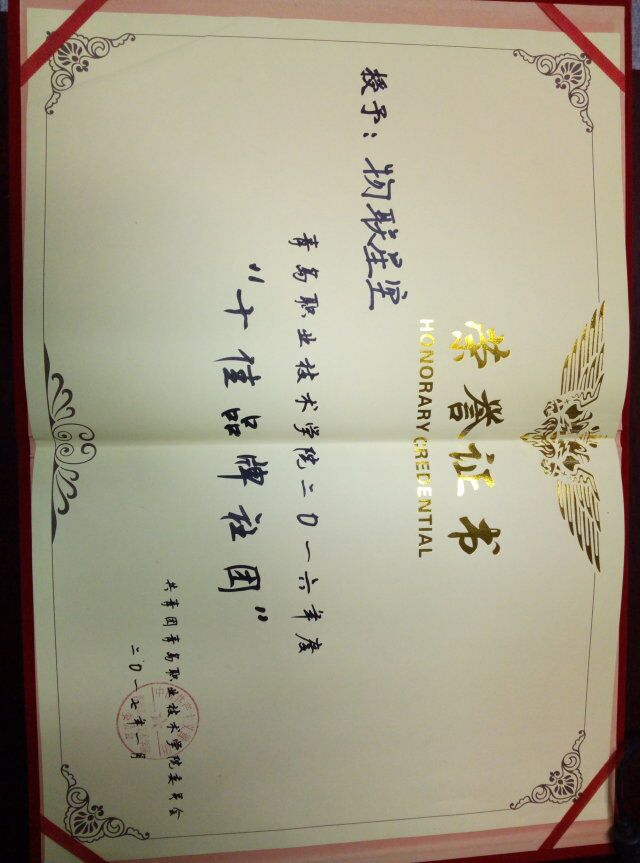 荣誉证书
HONORARY CREDENTIAL
授予：物联星空
青岛职业技术学院二〇一六年度
“十佳品牌社团”
共青团青岛职业技术学院委员会
二〇一七年一月